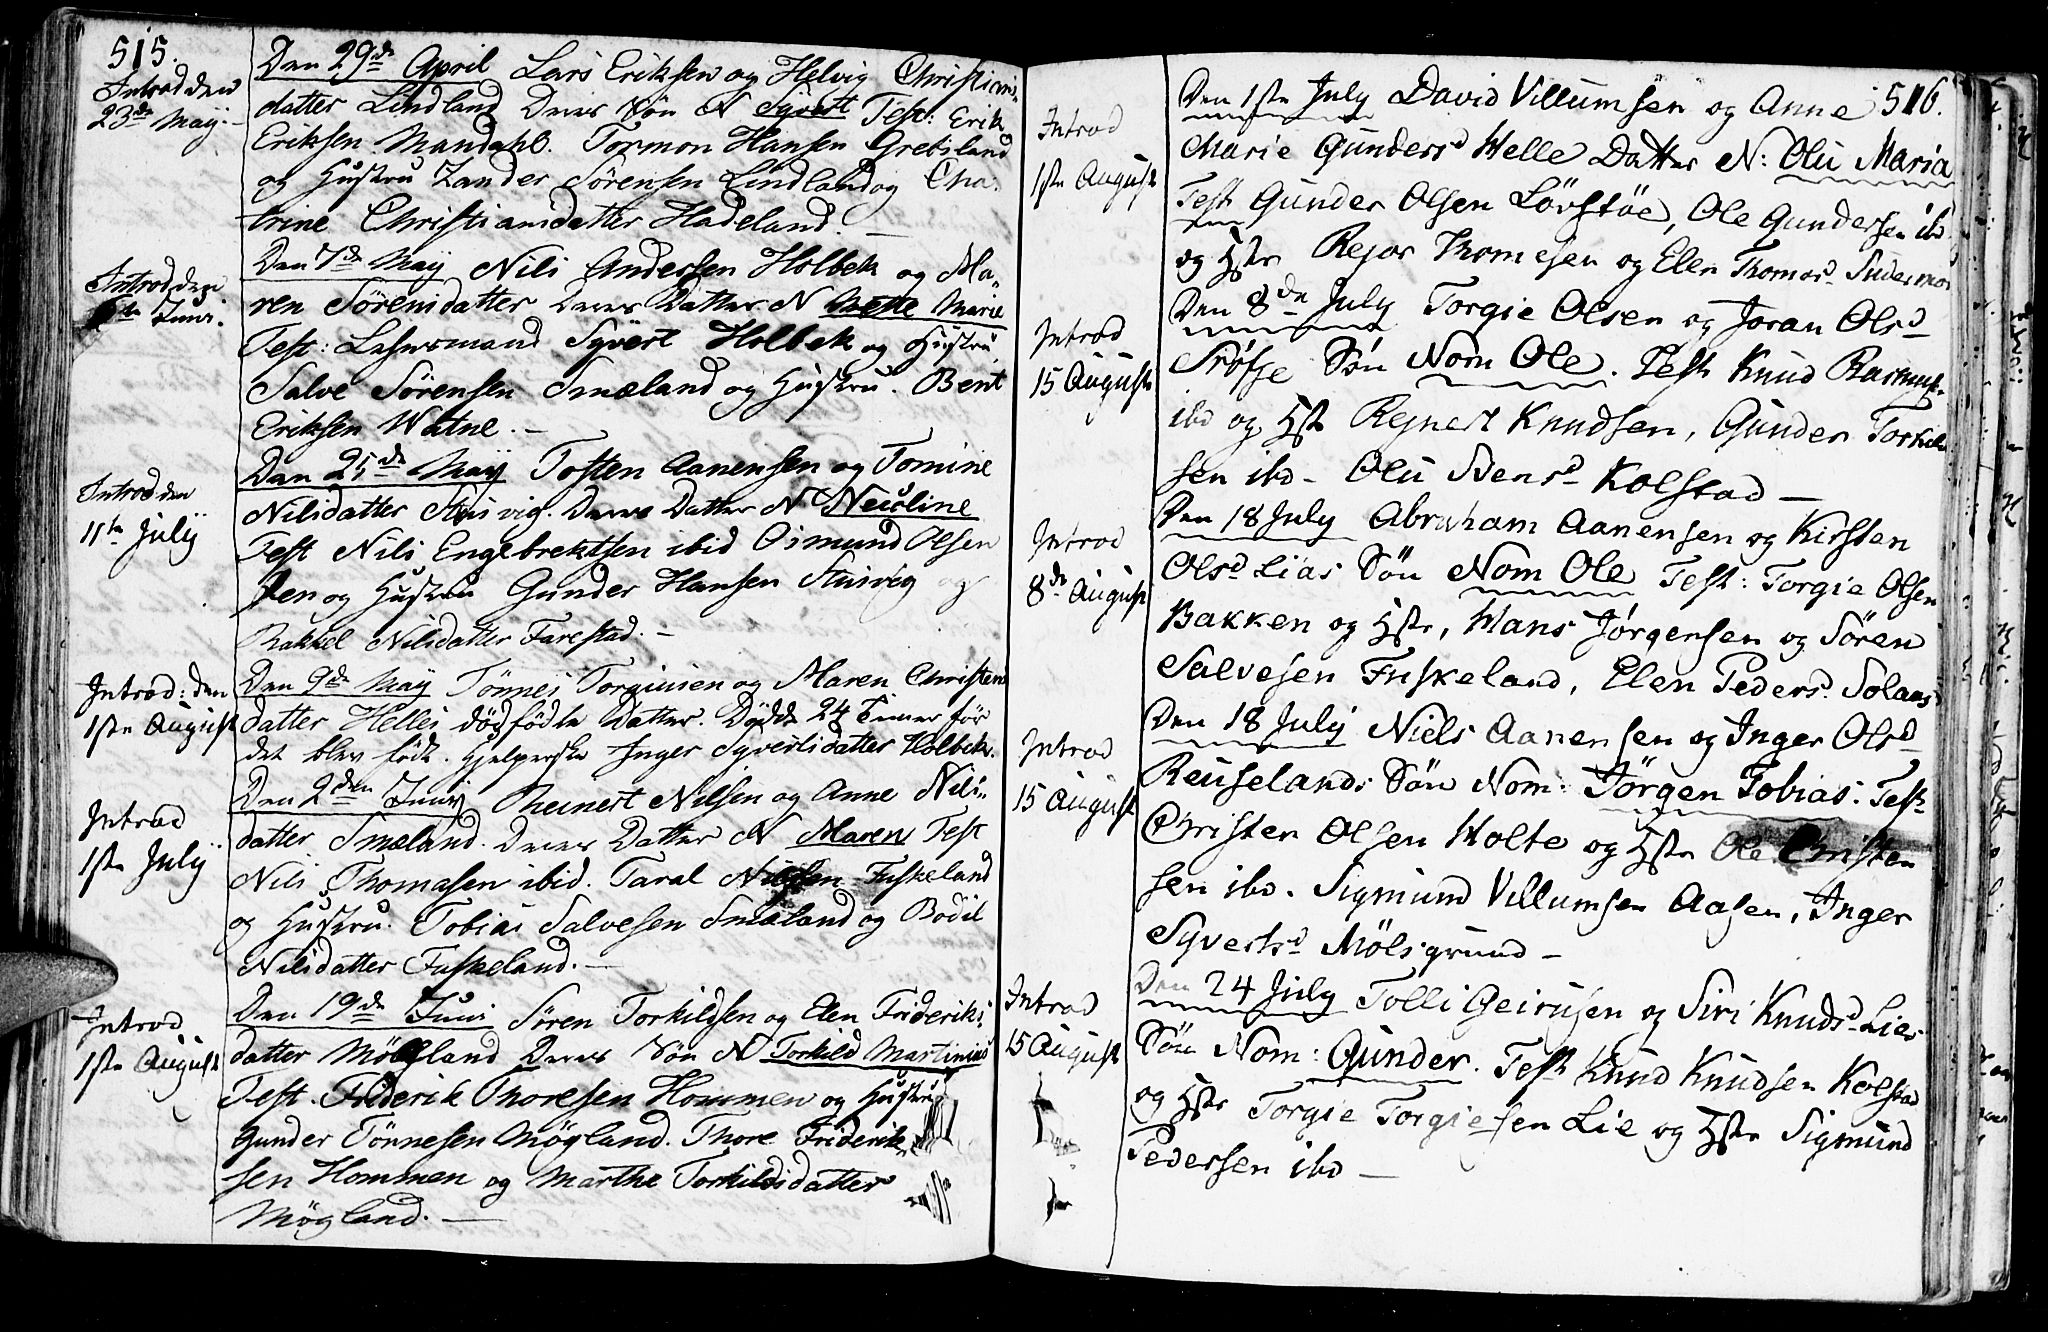 515.
Introd den
23de May.
Den 29de April Lars Eriksen og Helvig Christians-
datter Lindland Deres Søn N Syvert Test: Erik
Eriksen Mandahl. Tormon Hansen Grebsland
og Hustru Zander Sørensen Lindland og Cha-
trine Christiansdatter Hadeland. —
Introd den
Juni.
Den 7de May Nils Andersen Holbek og Ma-
ren Sørensdatter Deres Datter N Mette Marie
Test: Lehnsmand Syvert Holbek og Hustru
Salve Sørensen Smæland og Hustru. Bent
Eriksen Watne. —
Introd den
11te July
Den 25de May Tosten Aanensen og Tomine
Nilsdatter Stusvig. Deres Datter N Neuline
Test Nils Engebrektsen ibid Osmund Olsen
og Hustru Gunder Hansen Stusvig og
Rakkel Nilsdatter Farestad. —
Introd: den
1ste August
Den 9de May Tönnes Torgiusen og Maren Christens
datter Helles dødfödte Datter. Dødde 24 Timer før
det blev født. Hjelperske Inger Syvertsdatter Holbek.
Introd
1ste July
Den 2den Juny Reinert Nilsen og Anne Nils-
datter Smæland. Deres Datter N Maren Test
Nils Thomasen ibid. Taral Nilsen Fuskeland
og Hustru. Tobias Salvesen Smæland og Bodil
Nilsdatter Fuskeland. —
Introd
1ste August
Den 19de Juni Søren Torkildsen og Elen Frideriks-
datter Mögland Deres Søn N Torkild Martinius
Test. Friderik Thoresen Hommen og Hustru
Gunder Tönnesen Mögland. Thore Friderik-
sen Hommen og Marthe Torkildsdatter
Mögland. —
516.
Introd
1ste August
Den 1ste July David Villumsen og Anne
Marie Gundersd Helle Datter N: Olu Maria
Test Gunder Olsen Lövstöe, Ole Gundersen ibd
og Hstr Rejar Thomesen og Elen Thomasd
Introd
15 August
Den 8de July Torgie Olsen og Joran Olsd
Søn Nom Ole. Test Knud
ibd og Hstr Rejnert Knudsen, Gunder Torkild-
sen ibd - Olu Stensd Kolstad —
Introd
8de August
Den 18 July Abraham Aanensen og Kirsten
Olsd Lias Søn Nom Ole Test: Torgie Olsen
Bakken og Hstr, Hans Jørgensen og Søren
Salvesen Fuskeland, Elen Pedersd Solaas
Introd
15 August
Den 18 July Niels Aanensen og Inger Olsd
Reuselands Søn Nom: Jörgen Tobias. Test
Christen Olsen Holte og Hstr Ole Christen
sen ibd. Sigmund Villumsen Aasen, Inger
Syvertsd Mölsgrund —
Introd
15 August
Den 24 July Tolli Geirusen og Siri Knudsd Lies
Søn Nom: Gunder. Test Knud Knudsen Kolstad
og Hstr Torgie Torgiesen Lie og Hstr Sigmund
Pedersen ibd —